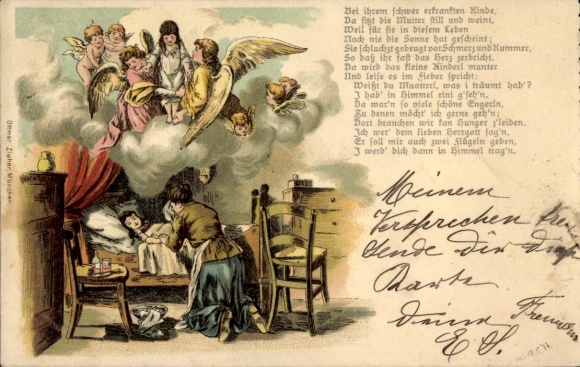 Bei ihrem schwer erkrankten Kinde,
Da sitzt die Mutter still und weint,
Weil für sie in diesem Leben
Noch nie die Sonne hat gescheint;
Sie schluchzt gebeugt vor Schmerz und Kummer,
So daß ihr fast das Herz zerbricht.
Da wird das kleine Kinderl munter
Und leise es im Fieber spricht:
Weißt du Muatterl, was i träumt hab'?
I hab' in Himmel eini g'seh'n.
Da war'n so viele schöne Engerln,
Zu denen möcht' ich gerne geh'n;
Dort brauchen wir kan Hunger z'leiden,
Ich wer' dem lieben Herrgott sag'n,
Er soll mir auch zwei Flügeln geben,
I werd' dich dann in Himmel trag'n.
Ottmar Zieher, München
Meinem
Versprechen
sende Dir diese
Karte
Deine
E S.